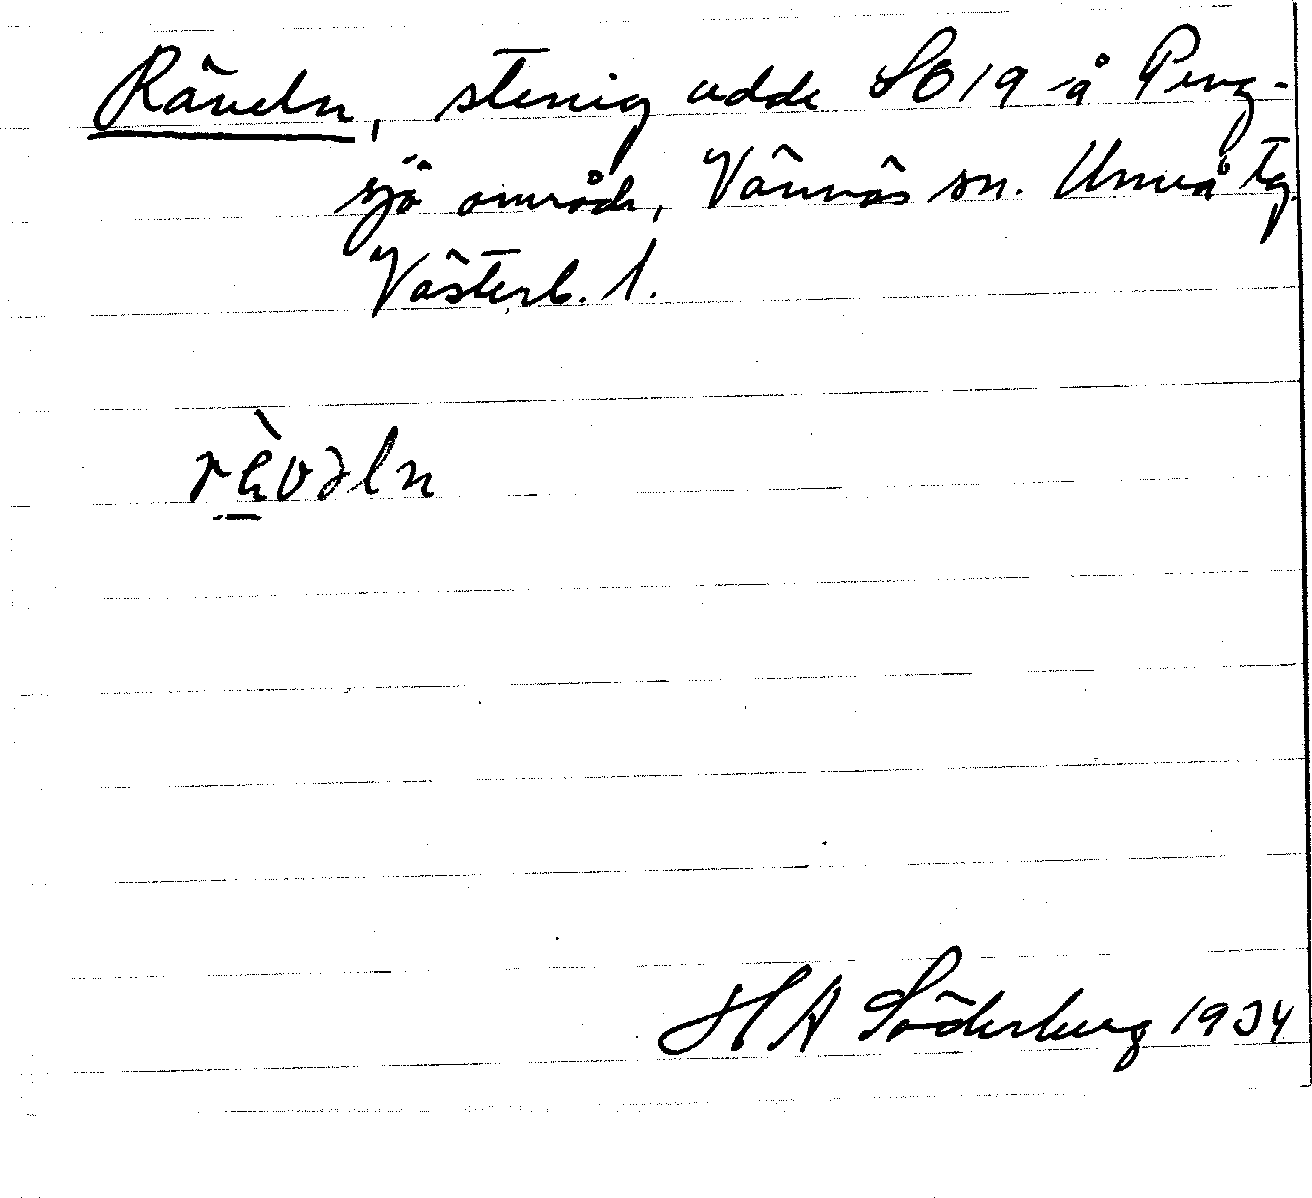 Räveln, stenig udde SO 19 å Peng-
sjö område, Vännäs sn. Umeå tg.
Västerb. l.
rèvəln
H A Söderberg 1934